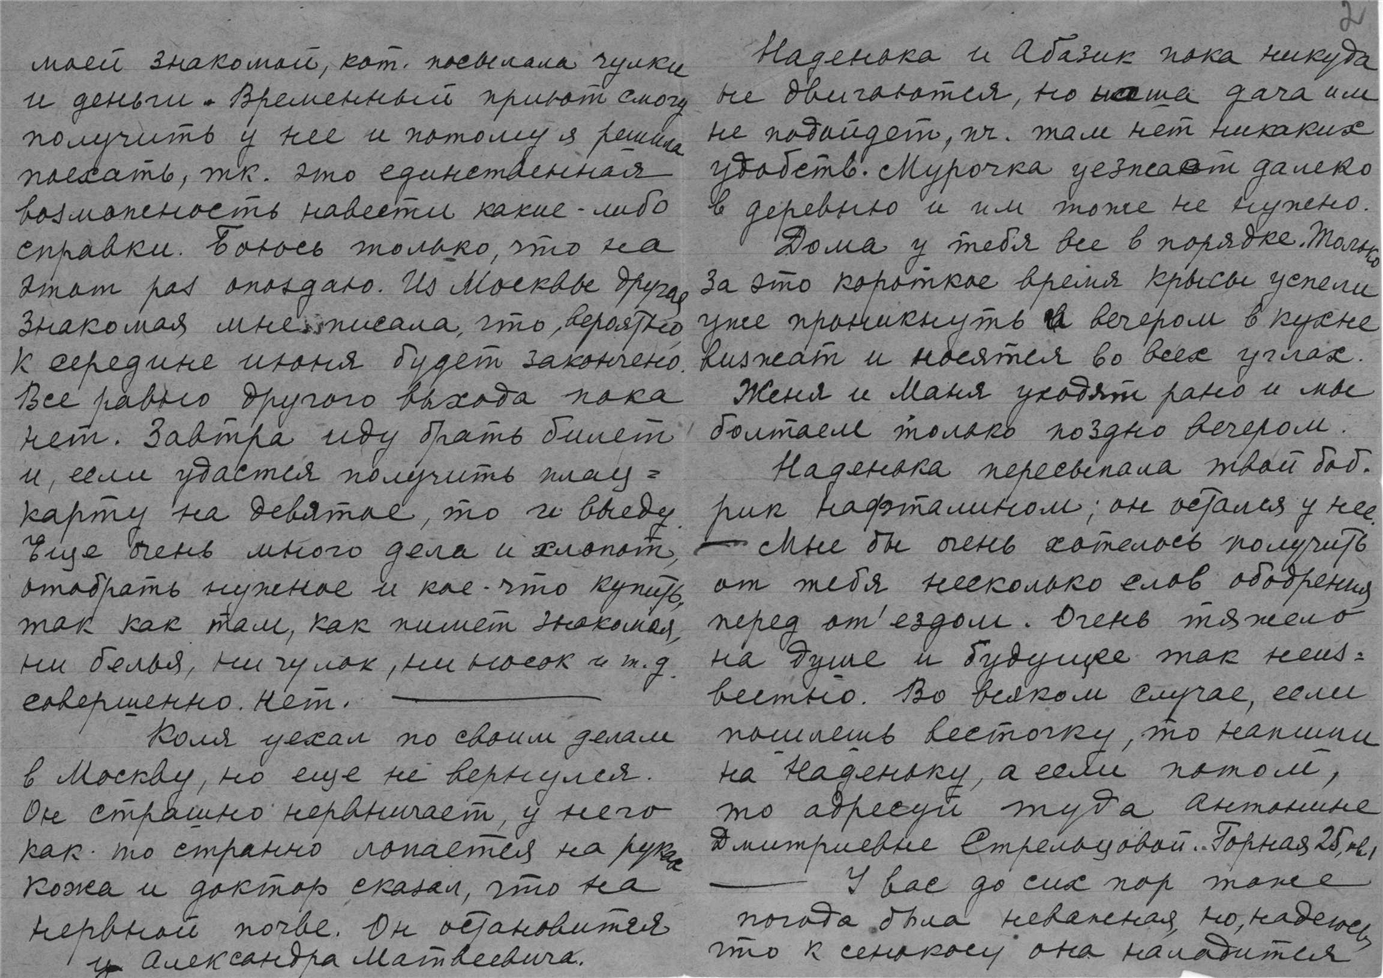 моей знакомой, кот. посылала чулки
и деньги. Временный приют смогу
получить у нее и потому я решила
поехать, тк. это единственная
возможность навести какие-либо
справки. Боюсь только, что на
этот раз опоздаю. Из Москвы другая
знакомая мне писала, что, вероятно,
к середине июня будет закончено.
Все равно другого выхода пока
нет. Завтра иду брать билет
и, если удастся получить плац=
карту на девятое, то и выеду.
Еще очень много дела и хлопот,
отобрать нужное и кое-что купить,
так как там, как пишет знакомая,
ни белья, ни чулок, ни носок и т.д.
совершенно нет.
Коля уехал по своим делам
в Москву, но еще не вернулся.
Он страшно нервничает, у него
как-то странно лопается на руках
кожа и доктор сказал, что на
нервной почве. Он остановится
у Александра Матвеевича.
2
Наденька и Абазик пока никуда
не двигаются, но наша дача им
не подойдет, пч. там нет никаких
удобств. Мурочка уезжает далеко
в деревню и им тоже не нужно.
Дома у тебя все в порядке. Только
за это короткое время крысы успели
уже проникнуть и вечером в кухне
визжат и носятся во всех углах.
Женя и Маня уходят рано и мы
болтаем только поздно вечером.
Наденька пересыпала твой боб-
рик нафталином; он остался у нее.
— Мне бы очень хотелось получить
от тебя несколько слов ободрения
перед от'ездом. Очень тяжело
на душе и будущее так неиз=
вестно. Во всяком случае, если
пошлешь весточку, то напиши
на Наденьку, а если потом,
то адресуй туда Антонине
Дмитриевне Стрельцовой. Горная 25, кв. 1
— У вас до сих пор тоже
погода была неважная, но, надеюсь,
что к сенокосу она наладится